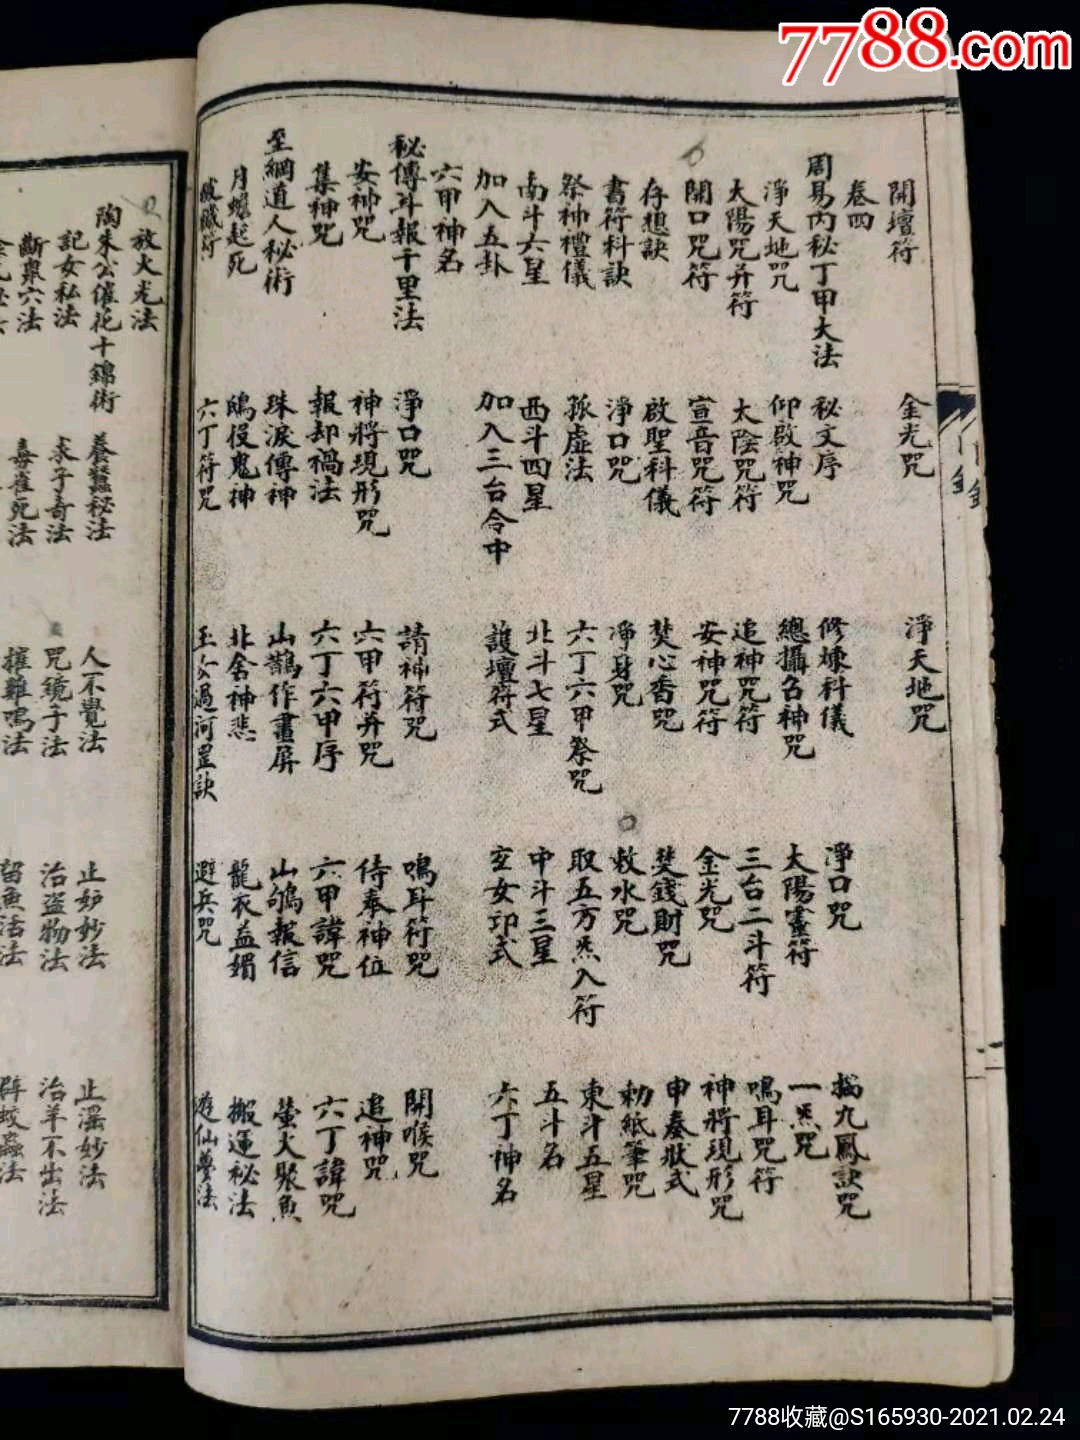 7788.com
開壇符 金光咒 淨天地咒
卷四
周易內秘丁甲大法 秘文序 修煉科儀 淨口咒 搊九鳳訣咒
淨天地咒 仰啟神咒 總攝召神咒 太陽靈符 一炁咒
太陽咒并符 太陰咒符 追神咒符 三台二斗符 鳴耳咒符
開口咒符 宣音咒符 安神咒符 金光咒 神將現形咒
存想訣 啟聖科儀 焚心香咒 焚錢財咒 申奏狀式
書符科訣 淨口咒 凈身咒 敕水咒 勅紙筆咒
祭神禮儀 孤虛法 六丁六甲祭咒 取五方炁入符 東斗五星
南斗六星 西斗四星 北斗七星 中斗三星 五斗名
加入五卦 加入三台合中 護壇符式 玄女印式 六丁神名
六甲神名
秘傳耳報千里法 淨口咒 請神符咒 鳴耳符咒 開喉咒
安神咒 神將現形咒 六甲符并咒 侍奉神位 追神咒
集神咒 報却禍法 六丁六甲序 六甲諱咒 六丁諱咒
至綱道人秘術 珠淚傳神 山鵲作畫屏 山鴝報信 螢火聚魚
月蟾起死 鴟役鬼神 北舍神悲 龍衣益媚 搬運秘法
六丁符咒 玉女過河罡訣 避兵咒 遊仙夢法
放大光法
陶朱公催花十錦術 養蠶秘法 人不覺法 止妒妙法 止淫妙法
記女私法 求子奇法 咒鏡子法 治盜物法 治羊不出法
斷鼠六法 毒雀死法 摧雞鳴法 留魚活法 辟蚊蟲法
7788收藏@S165930-2021.02.24